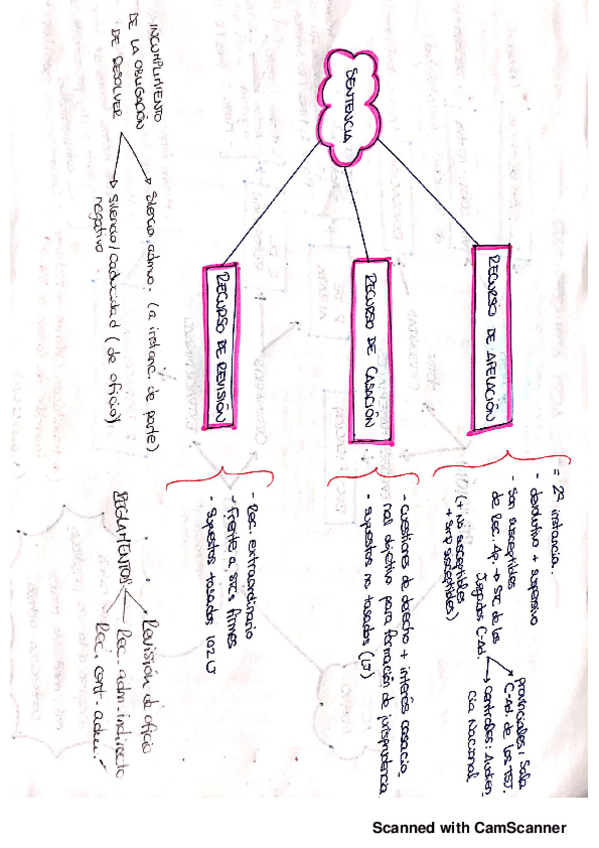 SENTENCIA
RECURSO DE APELACIÓN
= 2ª instancia.
- devolutivo + suspensivo
- son susceptibles
de Rec. Ap. → STC de los
Juzgados C-Ad.
(+ No susceptibles
+ smp susceptibles)
provinciales: Sala
C-Ad. de los TSJ.
centrales: Audien
cia Nacional
RECURSO DE CASACIÓN
- cuestiones de derecho + interés casacio
nal objetivo para formación de jurisprudencia
- supuestos no tasados (LJ)
RECURSO DE REVISIÓN
- Rec. extraordinario
- frente a STCs firmes
- supuestos tasados 102 LJ
INCUMPLIMIENTO
DE LA OBLIGACIÓN
DE RESOLVER
silencio admvo: (a instanc. de parte)
silencio/caducidad (de oficio)
negativo
REGLAMENTOS
Revisión d oficio
Rec. adm. indirecto
Rec. cont-adm.
Scanned with CamScanner